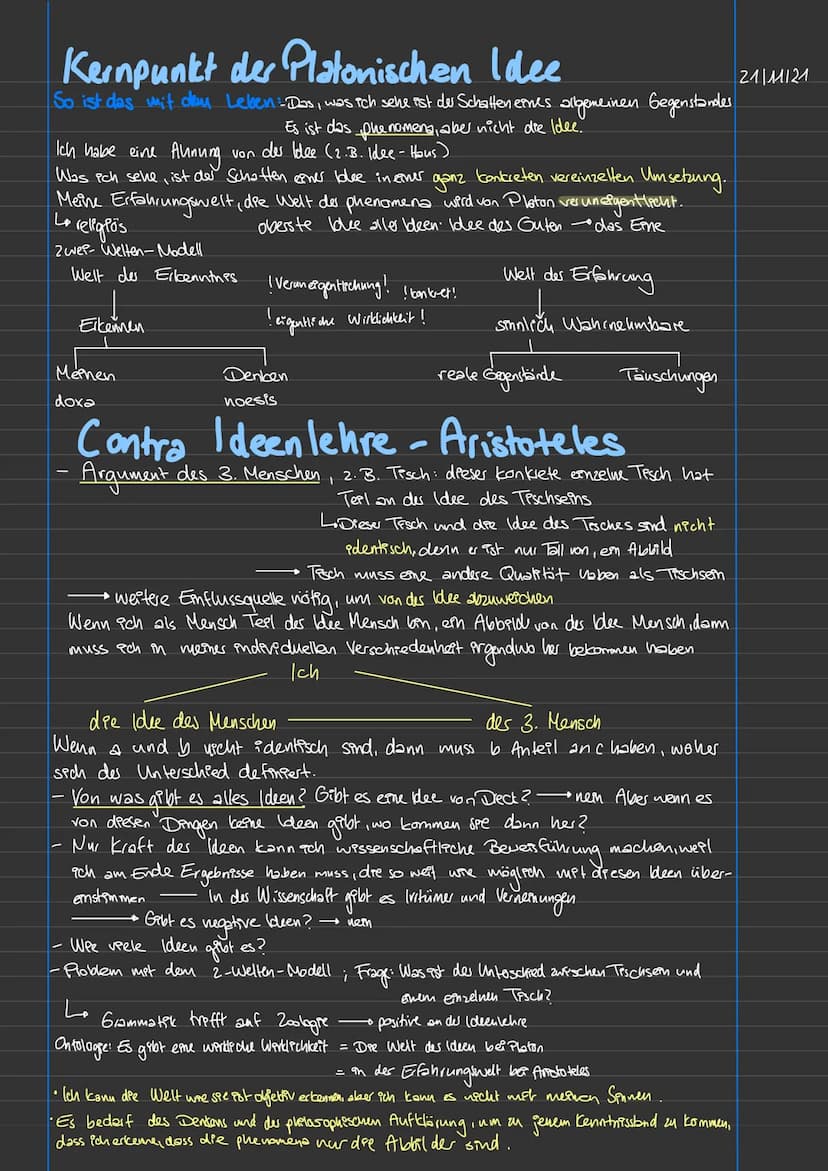 Kernpunkt der Platonischen Idee
21/11/21
So ist das mit dem Leben: Das, was ich sehe ist der Schatten eines allgemeinen Gegenstandes
Es ist das phenomena, aber nicht die Idee.
Ich habe eine Ahnung von der Idee (z.B. Idee-Haus)
Was ich sehe, ist der Schatten einer Idee in einer ganz konkreten vereinzelten Umsetzung.
Meine Erfahrungswelt, die Welt der phenomena wird von Platon veruneigentlicht.
↳ religiös oberste Idee aller Ideen: Idee des Guten → das Eine
Zwei-Welten-Modell
Welt der Erkenntnis !Veruneigentlichung! !konkret! Welt der Erfahrung
Erkennen !eigentliche Wirklichkeit! sinnlich Wahrnehmbare
Meinen Denken reale Gegenstände Täuschungen
doxa noesis
Contra Ideenlehre - Aristoteles
- Argument des 3. Menschen, z.B. Tisch: dieser konkrete einzelne Tisch hat
Teil an der Idee des Tischseins
↳ Dieser Tisch und die Idee des Tisches sind nicht
identisch, denn er ist nur Teil von, ein Abbild
→ Tisch muss eine andere Qualität haben als Tischsein
→ weitere Einflussquelle nötig, um von der Idee abzuweichen
Wenn ich als Mensch Teil der Idee Mensch bin, ein Abbild von der Idee Mensch, dann
muss ich in meiner individuellen Verschiedenheit irgendwo her bekommen haben
Ich
die Idee des Menschen der 3. Mensch
Wenn a und b nicht identisch sind, dann muss b Anteil an c haben, woher
sich der Unterschied definiert.
- Von was gibt es alles Ideen? Gibt es eine Idee von Dreck? → nein Aber wenn es
von diesen Dingen keine Ideen gibt, wo kommen sie dann her?
- Nur Kraft der Ideen kann ich wissenschaftliche Beweisführung machen, weil
ich am Ende Ergebnisse haben muss, die so weit wie möglich mit diesen Ideen über-
einstimmen — In der Wissenschaft gibt es Irrtümer und Verneinungen
→ Gibt es negative Ideen? → nein
- Wie viele Ideen gibt es?
- Problem mit dem 2-Welten-Modell; Frage: Was ist der Unterschied zwischen Tischsein und
einem einzelnen Tisch?
↳ Grammatik trifft auf Zoologie → positive an der Ideenlehre
Ontologie: Es gibt eine wirkliche Wirklichkeit = Die Welt der Ideen bei Platon
= in der Erfahrungswelt bei Aristoteles
• Ich kann die Welt wie sie ist objektiv erkennen, aber ich kann es nicht mit meinen Sinnen.
• Es bedarf des Denkens und der philosophischen Aufklärung, um zu jenem Kenntnisstand zu kommen,
dass ich erkenne, dass die phenomena nur die Abbilder sind.